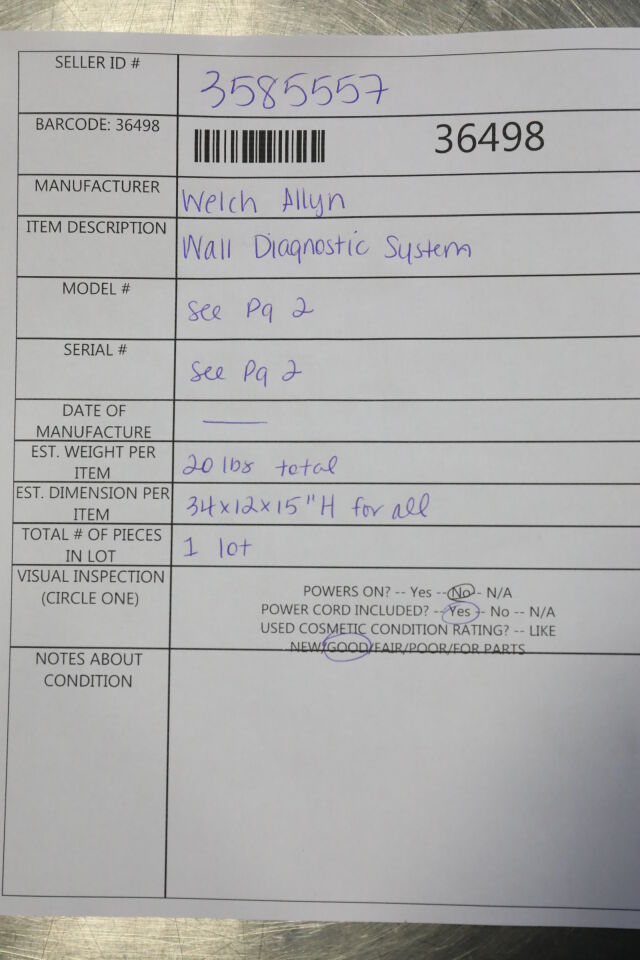 SELLER ID #
3585557
BARCODE: 36498
36498
MANUFACTURER
Welch Allyn
ITEM DESCRIPTION
Wall Diagnostic System
MODEL #
See Pg 2
SERIAL #
See Pg 2
DATE OF
MANUFACTURE
EST. WEIGHT PER
ITEM
20 lbs total
EST. DIMENSION PER
ITEM
34x12x15"H for all
TOTAL # OF PIECES
IN LOT
1 lot
VISUAL INSPECTION
(CIRCLE ONE)
POWERS ON? -- Yes -- No -- N/A
POWER CORD INCLUDED? -- Yes -- No -- N/A
USED COSMETIC CONDITION RATING? -- LIKE
NEW/GOOD/FAIR/POOR/FOR PARTS
NOTES ABOUT
CONDITION